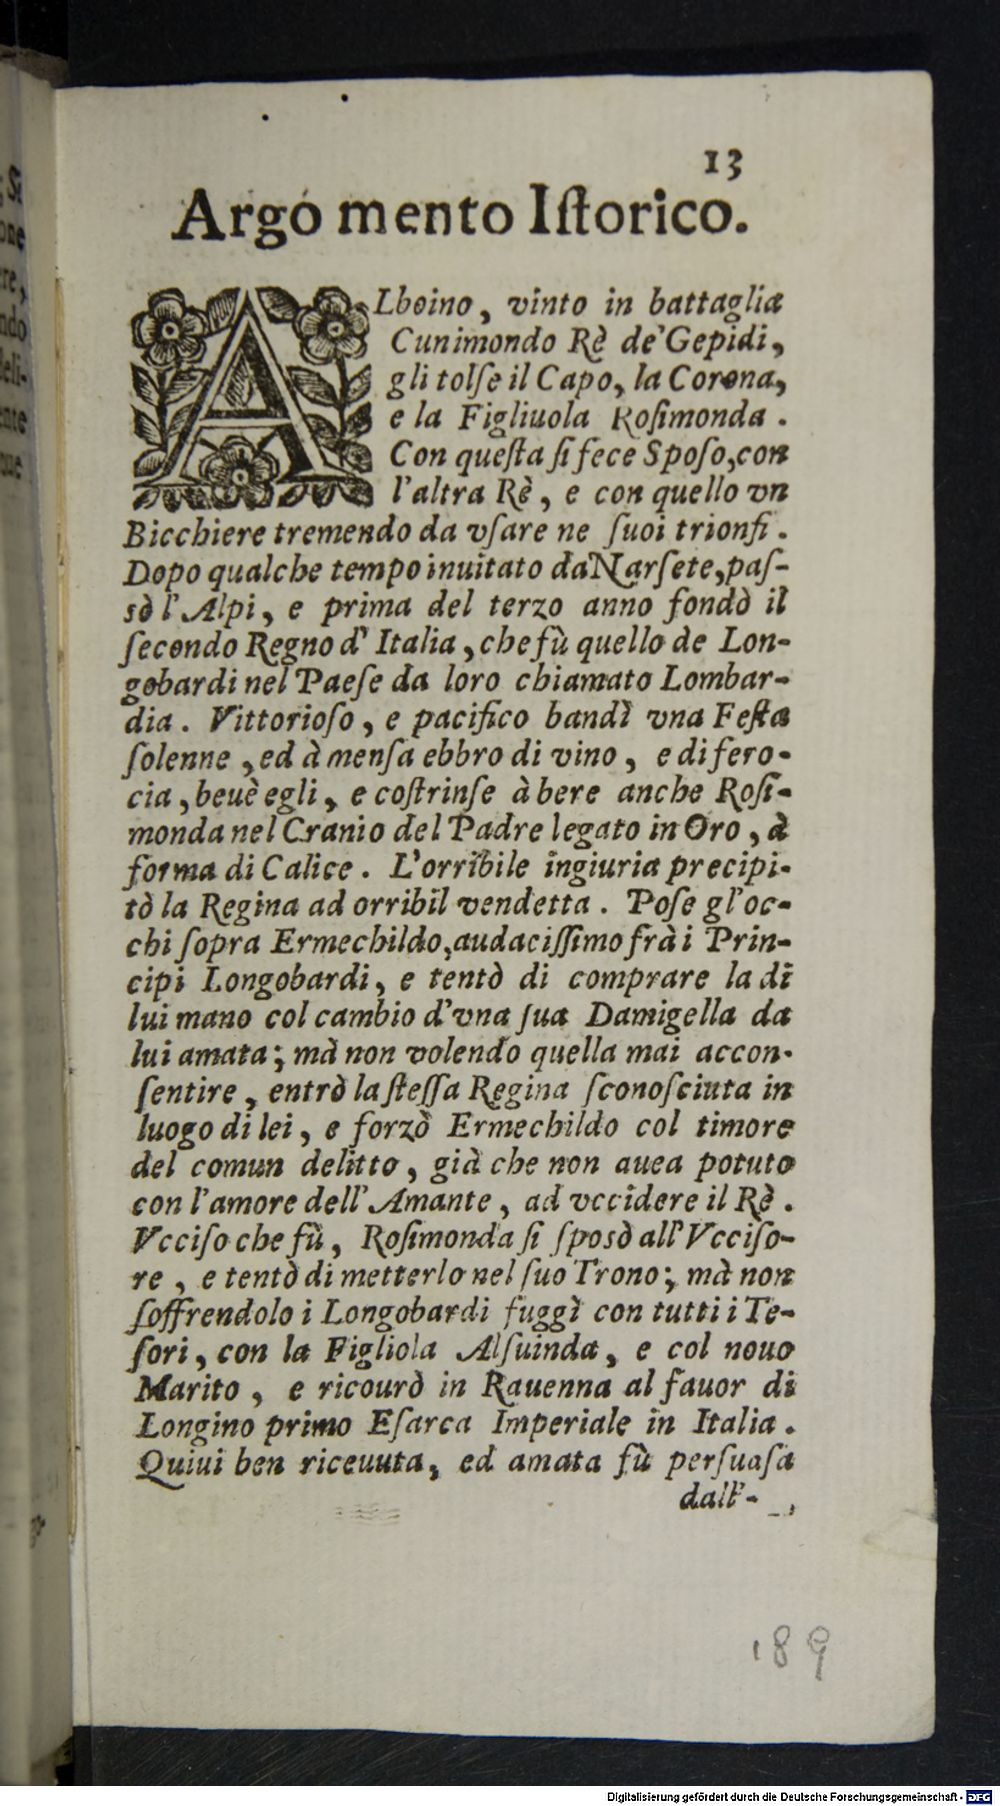 13
Argo mento Iſtorico.
ALboino, vinto in battaglia
Cunimondo Rè de' Gepidi,
gli tolſe il Capo, la Corona,
e la Figliuola Roſimonda.
Con queſta ſi fece Spoſo, con
l'altra Rè, e con quello vn
Bicchiere tremendo da vſare ne ſuoi trionfi.
Dopo qualche tempo inuitato da Narſete, paſ-
sò l'Alpi, e prima del terzo anno fondò il
ſecondo Regno d' Italia, che fù quello de Lon-
gobardi nel Paeſe da loro chiamato Lombar-
dia. Vittorioſo, e pacifico bandì vna Feſta
ſolenne, ed à menſa ebbro di vino, e di fero-
cia, beuè egli, e coſtrinſe à bere anche Roſi-
monda nel Cranio del Padre legato in Oro, à
forma di Calice. L'orribile ingiuria precipi-
tò la Regina ad orribil vendetta. Poſe gl'oc-
chi ſopra Ermechildo, audaciſſimo frà i Prin-
cipi Longobardi, e tentò di comprare la di
lui mano col cambio d'vna ſua Damigella da
lui amata; mà non volendo quella mai accon-
ſentire, entrò la ſteſſa Regina ſconoſciuta in
luogo di lei, e forzò Ermechildo col timore
del comun delitto, già che non auea potuto
con l'amore dell' Amante, ad vccidere il Rè.
Vcciſo che fù, Roſimonda ſi ſposò all' Vcciſo-
re, e tentò di metterlo nel ſuo Trono; mà non
ſoffrendolo i Longobardi fuggì con tutti i Te-
ſori, con la Figliola Alſuinda, e col nouo
Marito, e ricourò in Rauenna al fauor di
Longino primo Eſarca Imperiale in Italia.
Quiui ben riceuuta, ed amata fù perſuaſa
dall'-
189
Digitalisierung gefördert durch die Deutsche Forschungsgemeinschaft - DFG